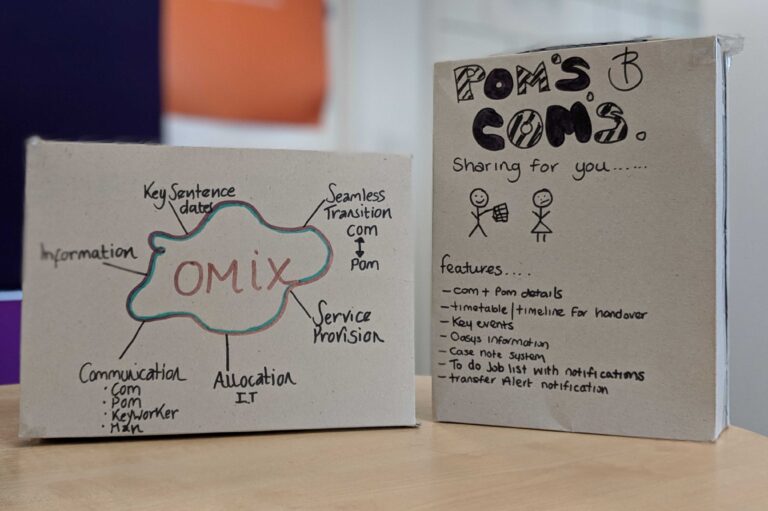 Key Sentence
dates
Seamless
Transition
Com
Pom
Information
OMiX
Service
Provision
Communication
· Com
· Pom
· Keyworker
· Man
Allocation
I.T
POM'S &
COM'S.
Sharing for you......
features....
- Com + Pom details
- timetable/timeline for handover
- Key events
- Oasys Information
- Case note system
- To do Job list with notifications
- transfer Alert notification